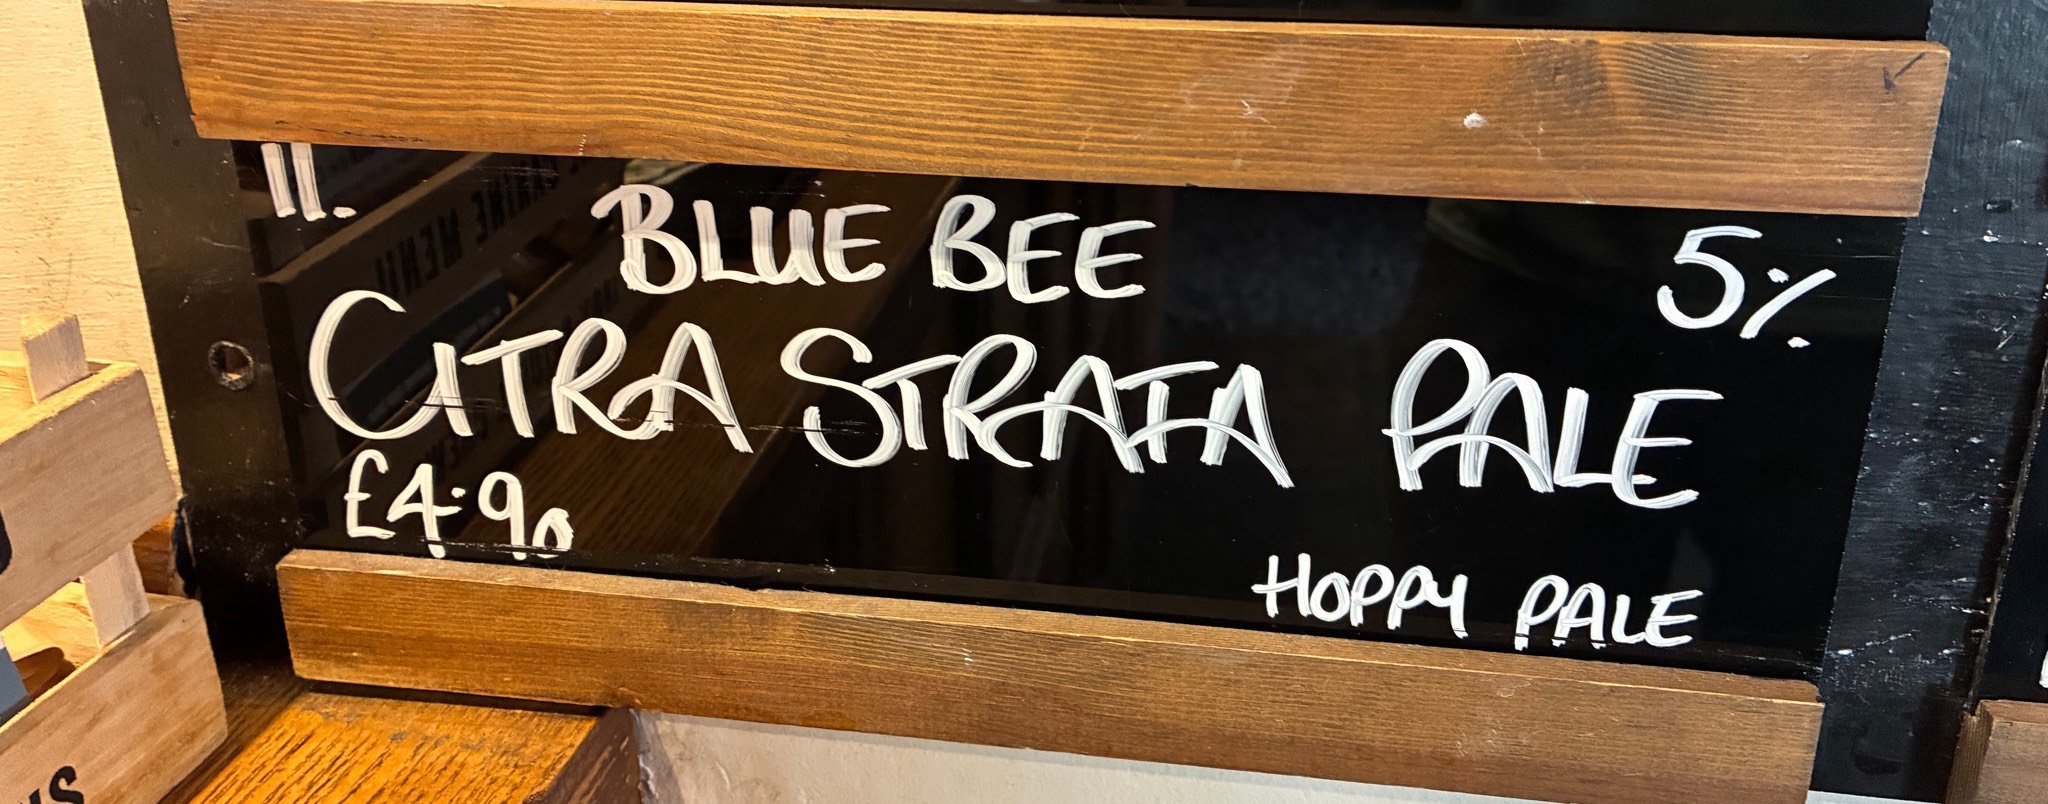 11.
BLUE BEE
5%
CITRA STRATA PALE
£4.90
HOPPY PALE